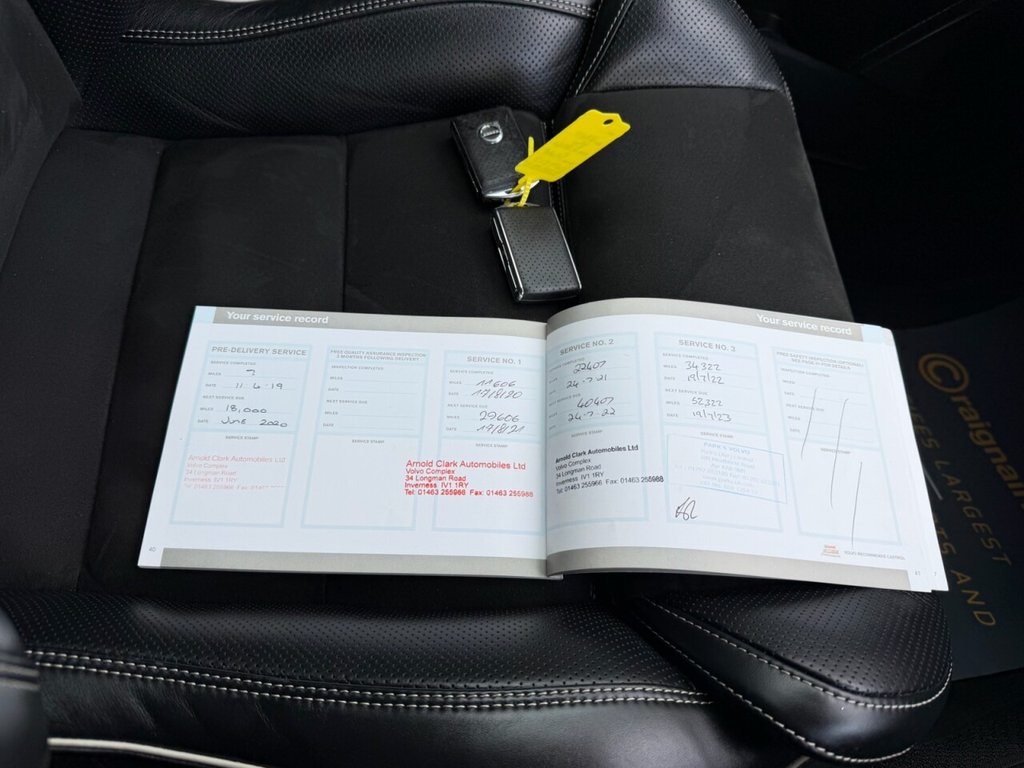 VOLVO
Your service record
PRE-DELIVERY SERVICE
SERVICE COMPLETED
MILES 7
DATE 11.6.19
NEXT SERVICE DUE
MILES 18,000
DATE June 2020
SERVICE STAMP
Arnold Clark Automobiles Ltd
Volvo Complex
34 Longman Road
Inverness IV1 1RY
Tel: 01463 255966 Fax: 01463
40
FREE QUALITY ASSURANCE INSPECTION
3 MONTHS FOLLOWING DELIVERY
INSPECTION COMPLETED
MILES
DATE
NEXT SERVICE DUE
MILES
DATE
SERVICE STAMP
SERVICE NO. 1
SERVICE COMPLETED
MILES 11606
DATE 17/8/20
NEXT SERVICE DUE
MILES 29606
DATE 17/8/21
SERVICE STAMP
Arnold Clark Automobiles Ltd
Volvo Complex
34 Longman Road
Inverness IV1 1RY
Tel: 01463 255966 Fax: 01463 255988
Your service record
SERVICE NO. 2
SERVICE COMPLETED
22407
24.7.21
NEXT SERVICE DUE
40407
24.7.22
SERVICE STAMP
Arnold Clark Automobiles Ltd
Volvo Complex
34 Longman Road
Inverness IV1 1RY
Tel: 01463 255966 Fax: 01463 255988
SERVICE NO. 3
SERVICE COMPLETED
MILES 34322
DATE 19/7/22
NEXT SERVICE DUE
MILES 52322
DATE 19/7/23
SERVICE STAMP
PARKS VOLVO
FREE SAFETY INSPECTION (OPTIONAL)
SEE PAGE FOR DETAILS
INSPECTION COMPLETED
MILES
DATE
NEXT SERVICE DUE
MILES
DATE
SERVICE STAMP
VOLVO RECOMMENDS CASTROL
41
7
Craignair
LARGEST
AND